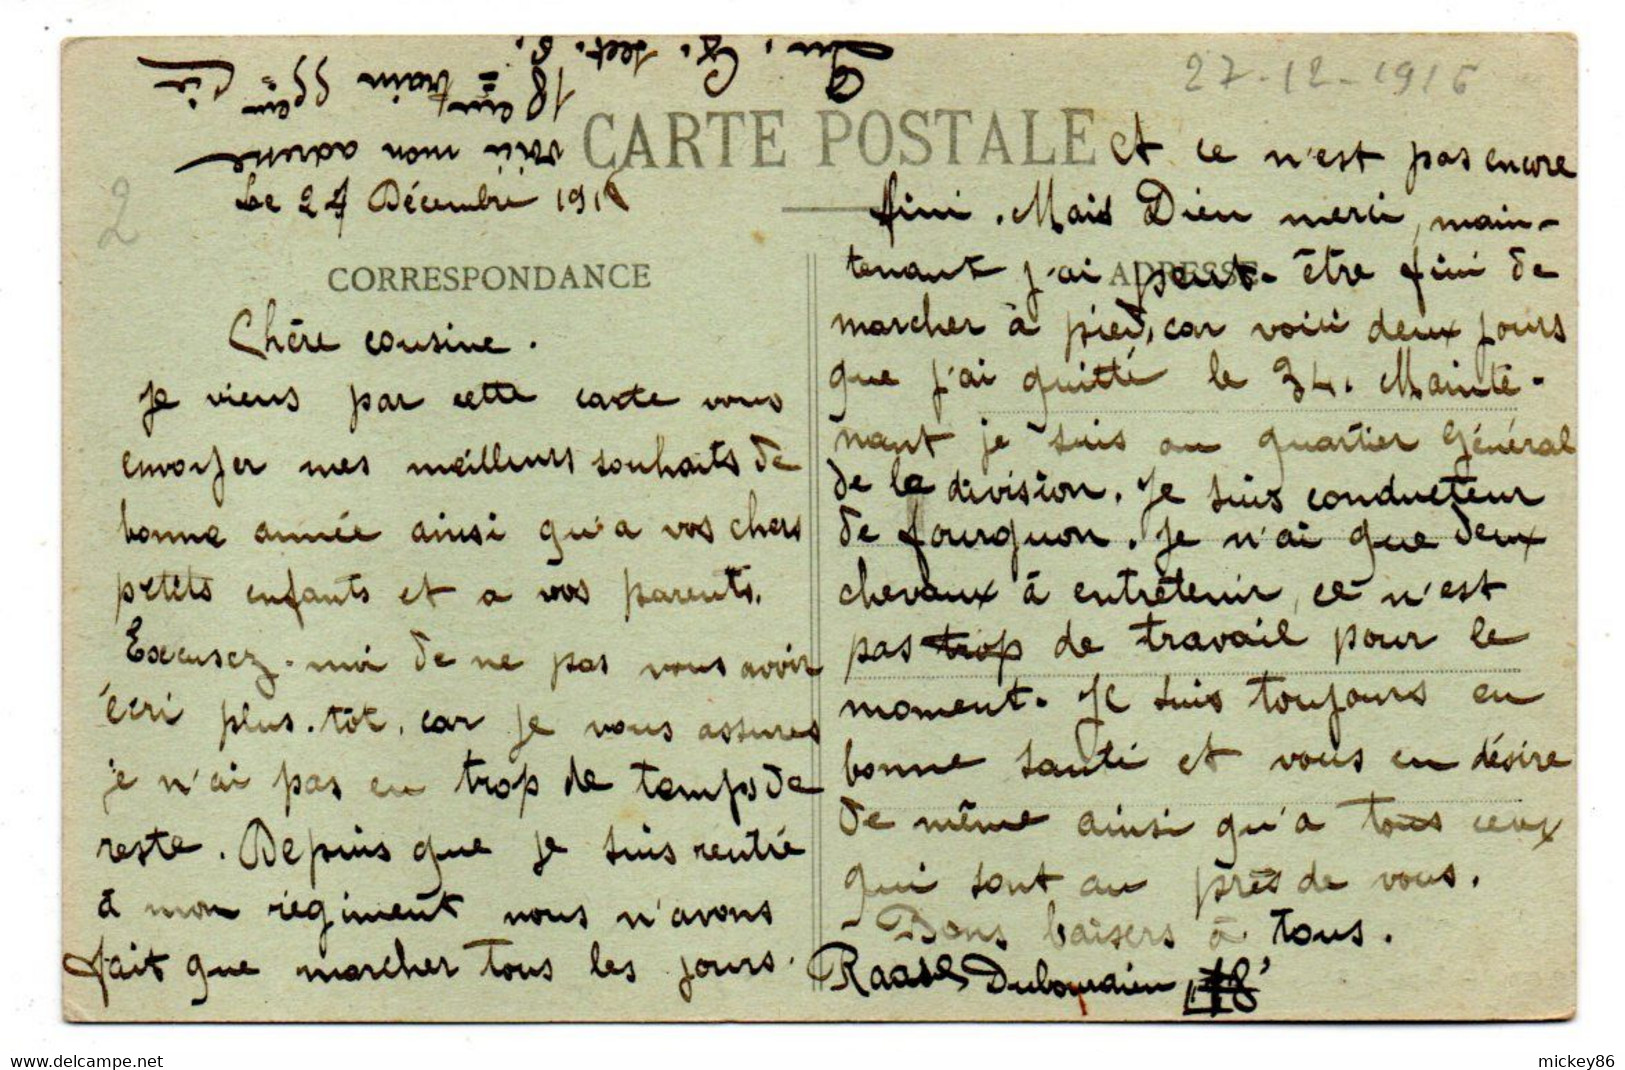 27-12-1916
2
voici mon adresse
18 em train 55em Cie
CARTE POSTALE
Le 27 Décembre 191
CORRESPONDANCE
ADRESSE
Chère cousine.
Je viens par cette carte vous
envoyer mes meilleurs souhaits de
bonne année ainsi qu'a vos chers
petits enfants et a vos parents.
Excusez-moi de ne pas vous avoir
écri plus-tôt, car je vous assures
je n'ai pas eu trop de temps de
reste. Depuis que je suis rentré
à mon régiment nous n'avons
fait que marcher tous les jours.
Et ce n'est pas encore
fini. Mais Dieu merci, main-
tenant j'ai peut-être fini de
marcher à pied, car voici deux jours
que j'ai quitté le 34. Mainte-
nant je suis au quartier Général
de la division. Je suis conducteur
de fourguon. Je n'ai que deux
chevaux à entretenir, ce n'est
pas trop de travail pour le
moment. Je suis toujours en
bonne santé et vous en désire
de même ainsi qu'a tous ceux
qui sont au près de vous.
Bons baisers à tous.
Dubourdieu
mickey86